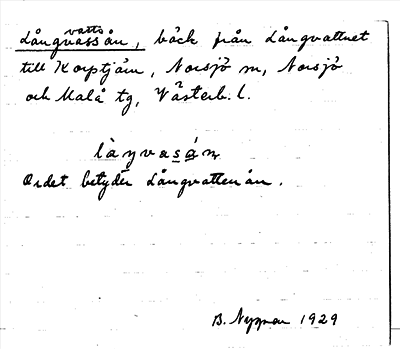 Långvassån, bäck från Långvattnet
vatts
till Korptjärn, Norsjö sn, Norsjö
och Malå tg, Västerb. l.
låŋvasån
Ordet betyder Långvattenån.
B. 1929